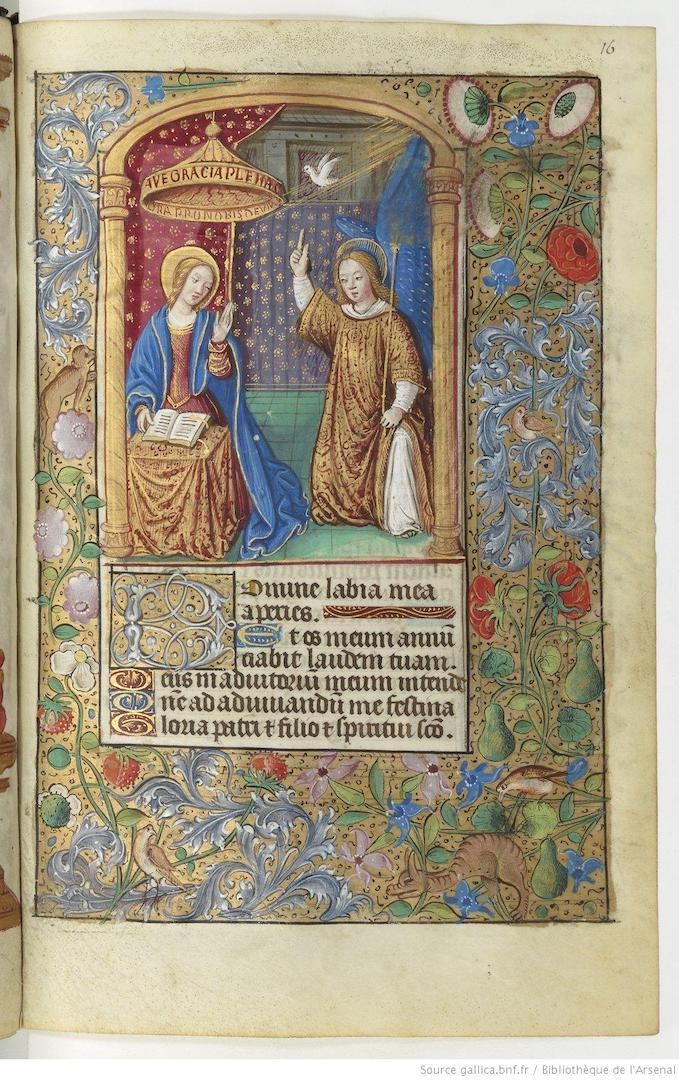 16
AVE GRACIA PLENA
ORA PRO NOBIS DEVM
Domine labia mea
aperies.
Et os meum annũ
ciabit laudem tuam.
Deus in adiutoriũ meum intende
Dñe ad adiuuandũ me festina
Gloria patri ⁊ filio ⁊ spiritui scõ.
Source gallica.bnf.fr / Bibliothèque de l'Arsenal